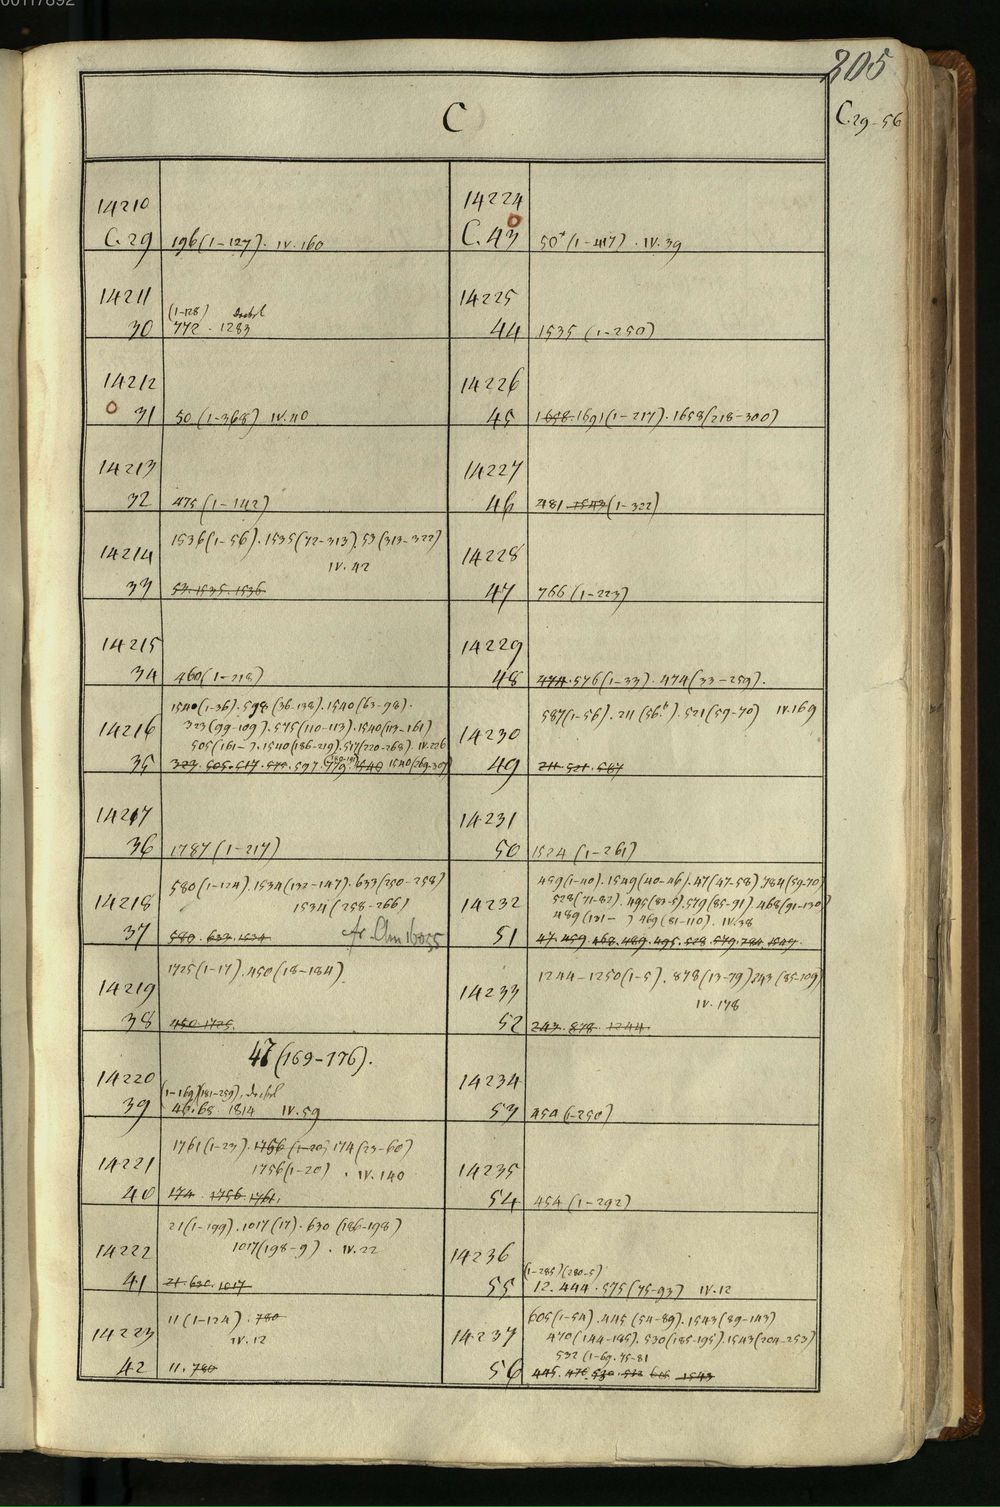 00117892
205
C
C.29-56
14210
C.29 196(1-127). IV.160
14211
(1-128)
30 772 . 1283
14212
31 50 (1-368) IV.40
14213
32 475 (1-142)
1536(1-56). 1535(72-313). 53(313-322)
14214
IV.42
33 53. 1535. 1536
14215
34 460(1-218)
1540(1-36). 598(36-138). 1540(63-98).
14216 323(99-109). 575(110-113). 1540(113-161)
505(161- ). 1540(186-219). 517(220-268). IV.226
35 323. 505. 517. 575. 597. 779. 1540 1540(269-307)
14217
36 1787 (1-217)
580(1-124). 1534(132-147). 633(250-258)
14218 1534(258-266)
37 580. 633. 1534
1725(1-17). 450(18-184)
14219
38 450. 1725.
47(169-176).
14220
(1-169)(181-259).
39 46.65 1814 IV.59
1761(1-23). 1756(1-20) 174(23-60)
14221 1756(1-20) . IV.140
40 174. 1756. 1761.
21(1-199). 1017(17). 630(186-198)
14222 1017(198-9) . IV.22
41 21. 630. 1017
11(1-124). 780
14223 IV.12
42 11. 780
14224
C.43 50*(1-417) . IV.39
14225
44 1535 (1-250)
14226
45 1658. 1691(1-217). 1658(218-300)
14227
46 481 1543(1-322)
14228
47 766(1-223)
14229
48 474. 576(1-33). 474(33-259).
587(1-56). 211(56*). 521(59-70) IV.169
14230
49 211. 521. 587
14231
50 1524 (1-261)
459(1-40). 1549(40-46). 47(47-58) 784(59-70)
528(71-82). 495(83-5). 579(85-91). 468(91-130)
14232
489(131- ) 469(81-110). IV.38
51 47. 459. 468. 489. 495. 528. 579. 784. 1549.
1244-1250(1-5). 878(13-79) 243(85-109)
14233 IV.178
52 243. 878. 1244.
14234
53 454(-250)
14235
54 454 (1-292)
14236
(1-285)(280-5)
55 12. 444. 575(75-93) IV.12
605(1-54). 445(54-89). 1543(89-143)
14237 470(144-185). 530(185-195). 1543(204-253)
532(1-69. 75-81
56 445. 470. 530. 532 605 1543